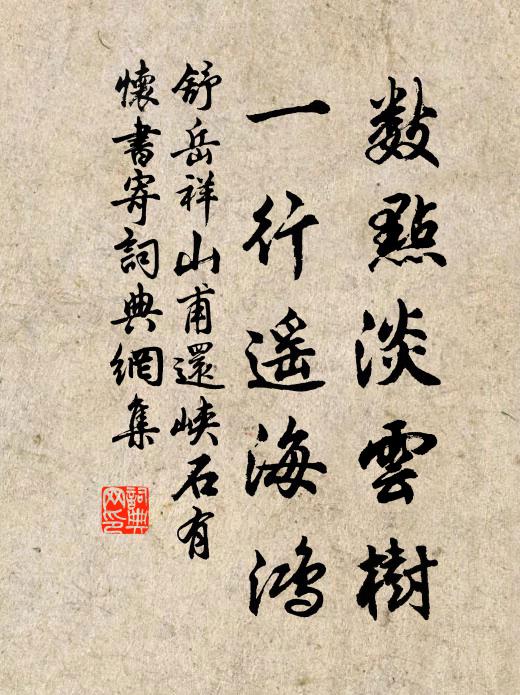 數點淡雲樹
一行遥海鴻
舒岳祥山甫還峡石有
懷書寄詞典網集
詞典
网印